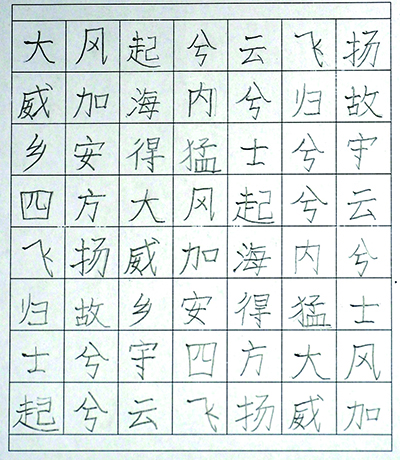 大风起兮云飞扬
威加海内兮归故
乡安得猛士兮宇
四方大风起兮云
飞扬威加海内兮
归故乡安得猛士
士兮宇四方大风
起兮云飞扬威加